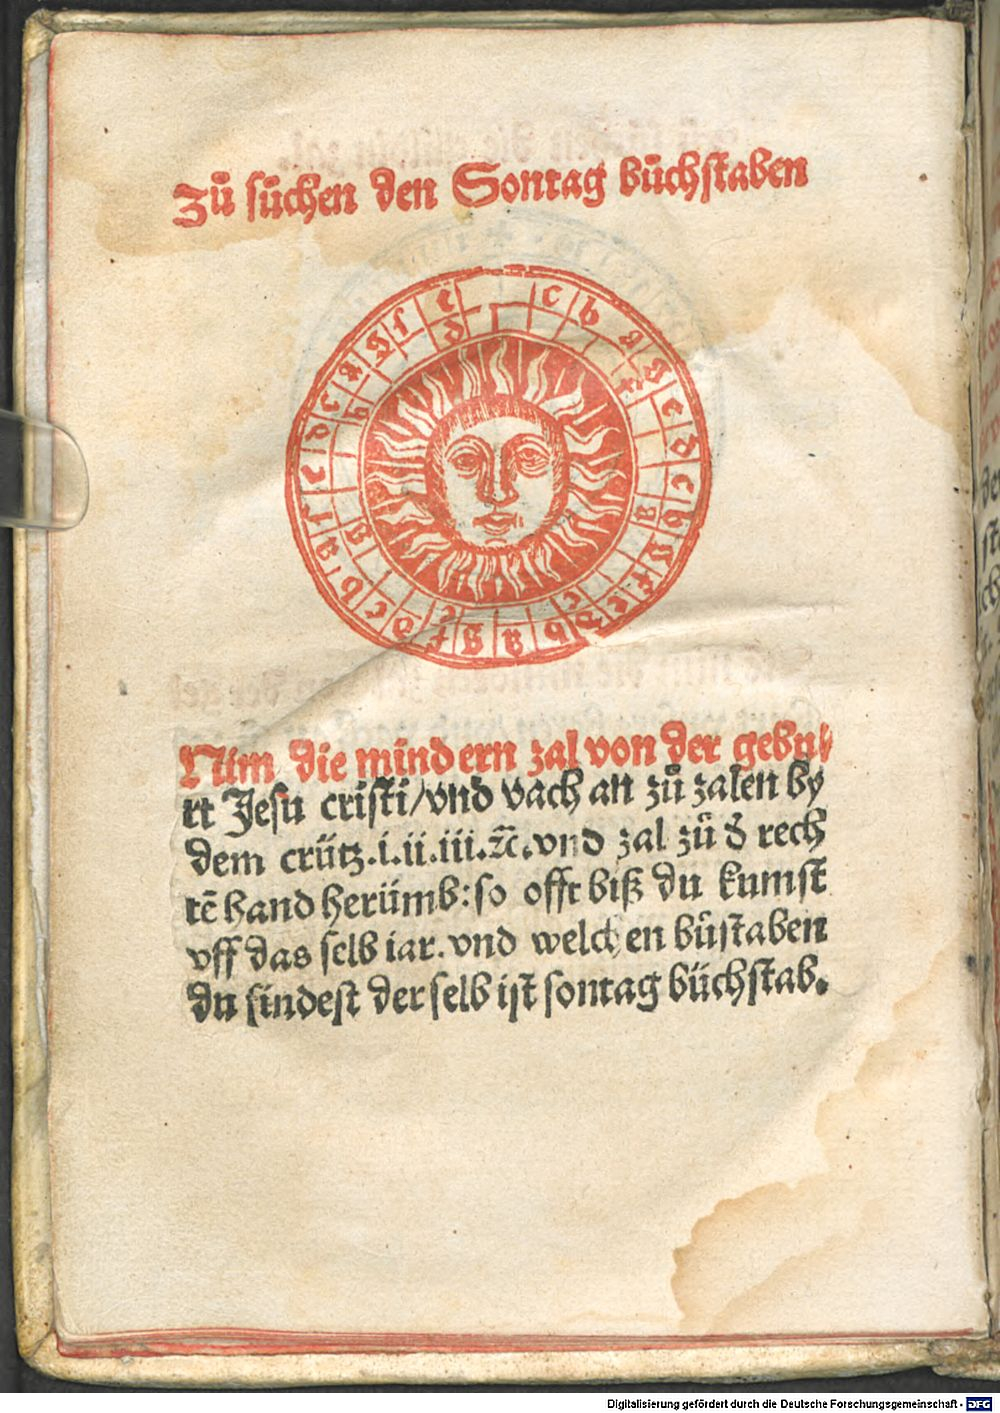 Zů sůchen den Sontag bůchstaben
Nüm die mündern zal von der gebu⸗
rt Jesu cristi/vnd vach an zů zalen by
dem crütz.i.ii.iii.ꝛc̄.vnd zal zů d̕ rech
tē hand herümb:so offt biß du kumst
vff das selb iar.vnd welchen bůstaben
du findest der selb ist sontag bůchstab.
Digitalisierung gefördert durch die Deutsche Forschungsgemeinschaft - DFG